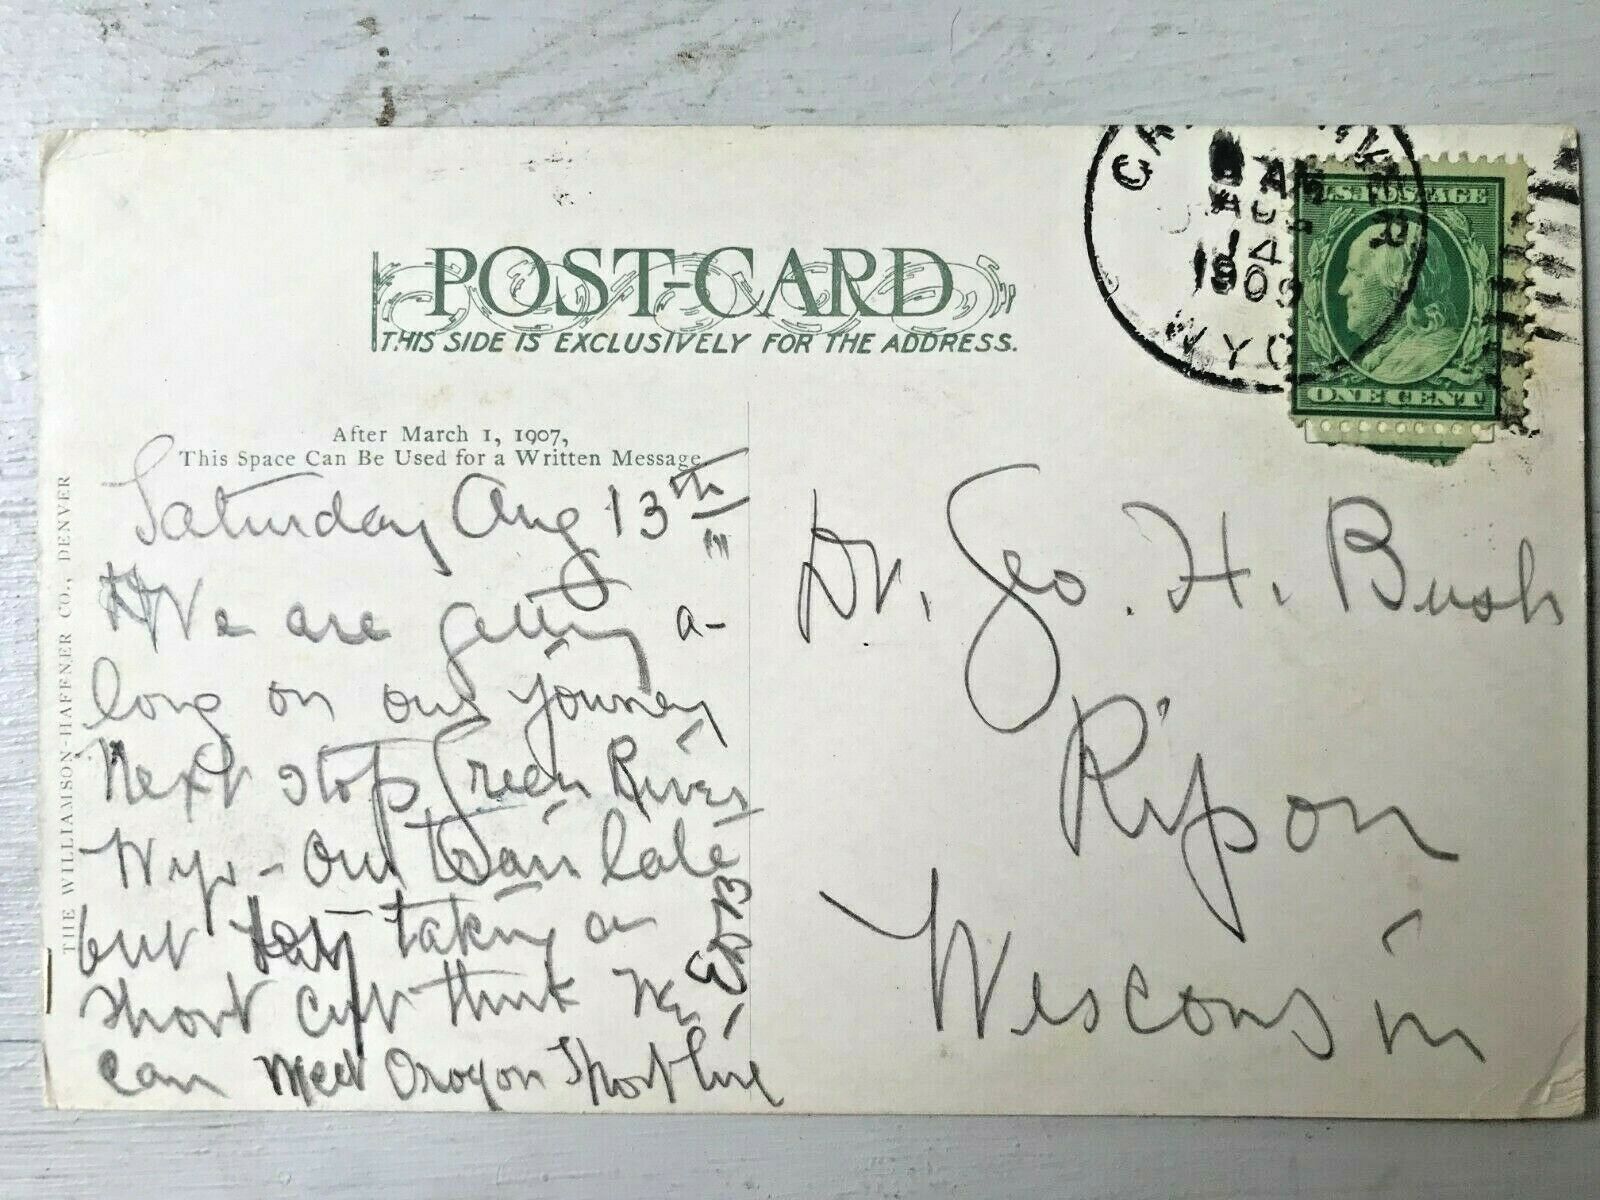 POST-CARD
THIS SIDE IS EXCLUSIVELY FOR THE ADDRESS.
After March 1, 1907,
This Space Can Be Used for a Written Message
THE WILLIAMSON-HAFFNER CO., DENVER
WYO
AUG
14
1909
U.S. POSTAGE
ONE CENT
Saturday Aug 13th
We are getting a-
long on our journey
Next stop Green River
Wyo - Our train late
but taking a
short cut think we
can meet Oregon Short line
EDB
Dr. Geo. H. Bush
Ripon
Wesconsin